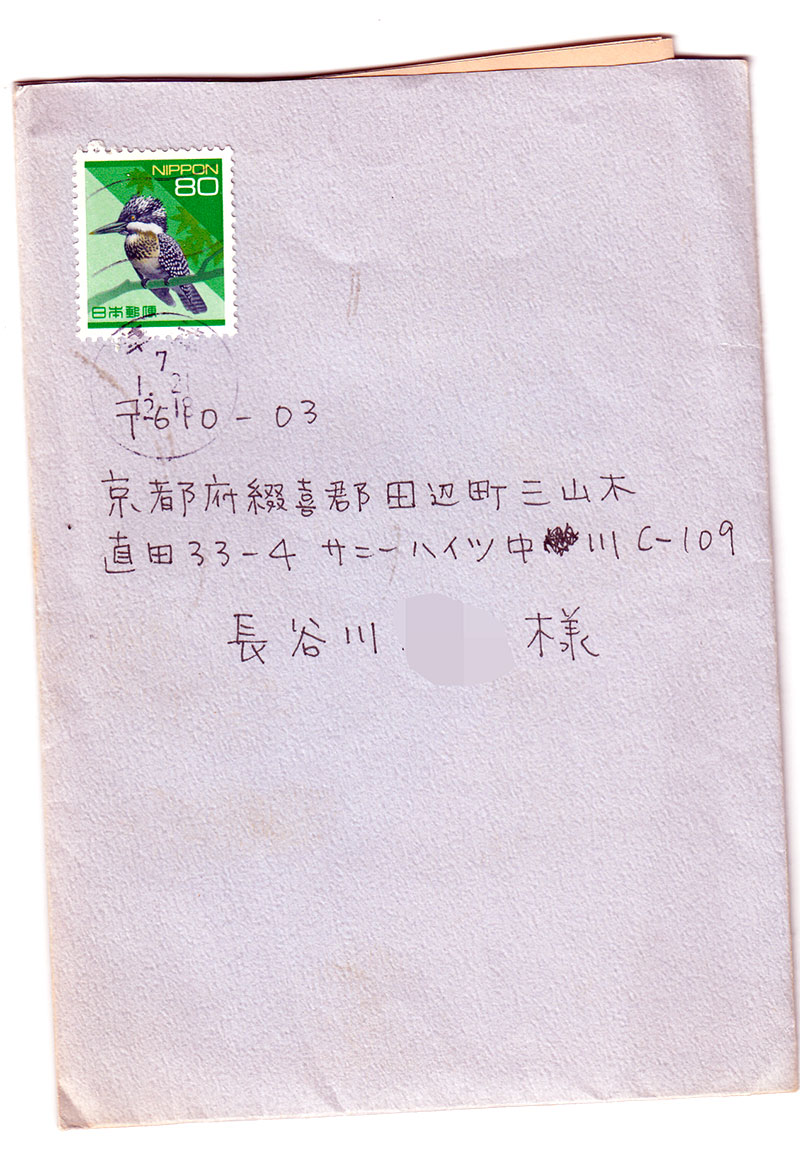 NIPPON
80
日本郵便
7
1.21
12-18
〒610-03
京都府綴喜郡田辺町三山木
直田33-4 サニーハイツ中川C-109
長谷川 様